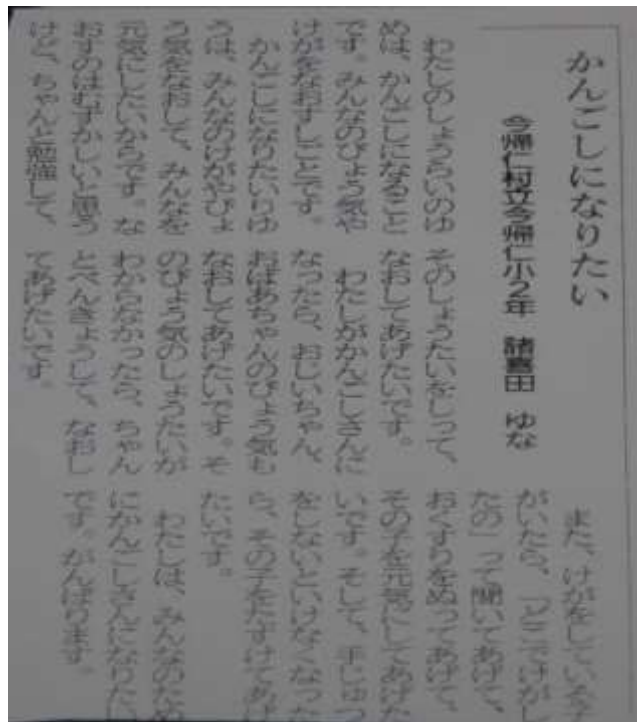 かんごしになりたい
今帰仁村立今帰仁小2年 諸喜田 ゆな
わたしのしょうらいのゆ
めは、かんごしになること
です。みんなのびょう気や
けがをなおすしごとです。
かんごしになりたいりゆ
うは、みんなのけがやびょ
う気をなおして、みんなを
元気にしたいからです。な
おすのはむずかしいと思う
けど、ちゃんと勉強して、
そのしょうたいをしって、
なおしてあげたいです。
わたしがかんごしさんに
なったら、おじいちゃん、
おばあちゃんのびょう気も
なおしてあげたいです。そ
のびょう気のしょうたいが
わからなかったら、ちゃん
とべんきょうして、なおし
てあげたいです。
また、けがをしている子
がいたら、「どこでけがし
たの」って聞いてあげて、
おくすりをぬってあげて、
その子を元気にしてあげた
いです。そして、手じゅつ
をしないといけなくなった
ら、その子をたすけてあげ
たいです。
わたしは、みんなのため
にかんごしさんになりたい
です。がんばります。